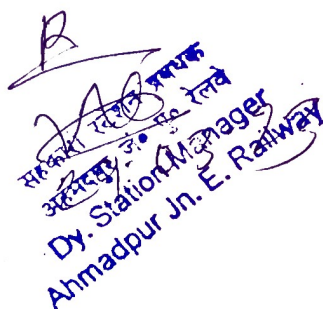 सहकारी स्टेशन प्रबंधक
अहमदपुर जं० पू० रेलवे
Dy. Station Manager
Ahmadpur Jn. E. Railway